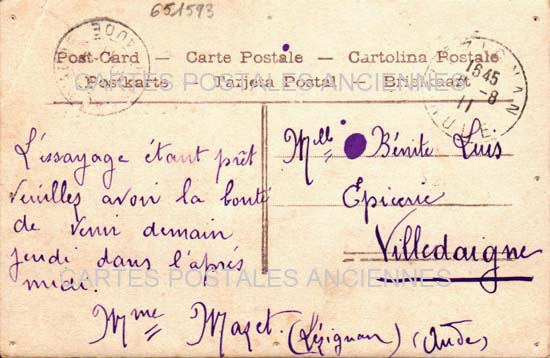 651593
Post-Card — Carte Postale — Cartolina Postale
Postkarte — Tarjeta Postal — Briefkaart
CARTES POSTALES ANCIENNES
16 45
-8
11
AUDE
L'essayage étant prêt
veuilles avoir la bonté
de venir demain
jeudi dans l'après
midi.
Mme Mazet.
Melle Bénite Luis
Epicerie
Villedaigne
(Lézignan) (Aude)
CARTES POSTALES ANCIENNES